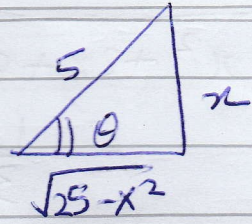 5
x
θ
√25-x²